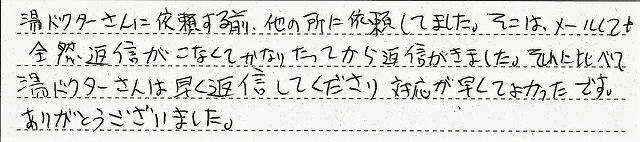 湯ドクターさんに依頼する前、他の所に依頼してました。そこは、メールしても
全然返信がこなくてかなりたってから返信がきました。それに比べて
湯ドクターさんは早く返信してくださり対応が早くてよかったです。
ありがとうございました。